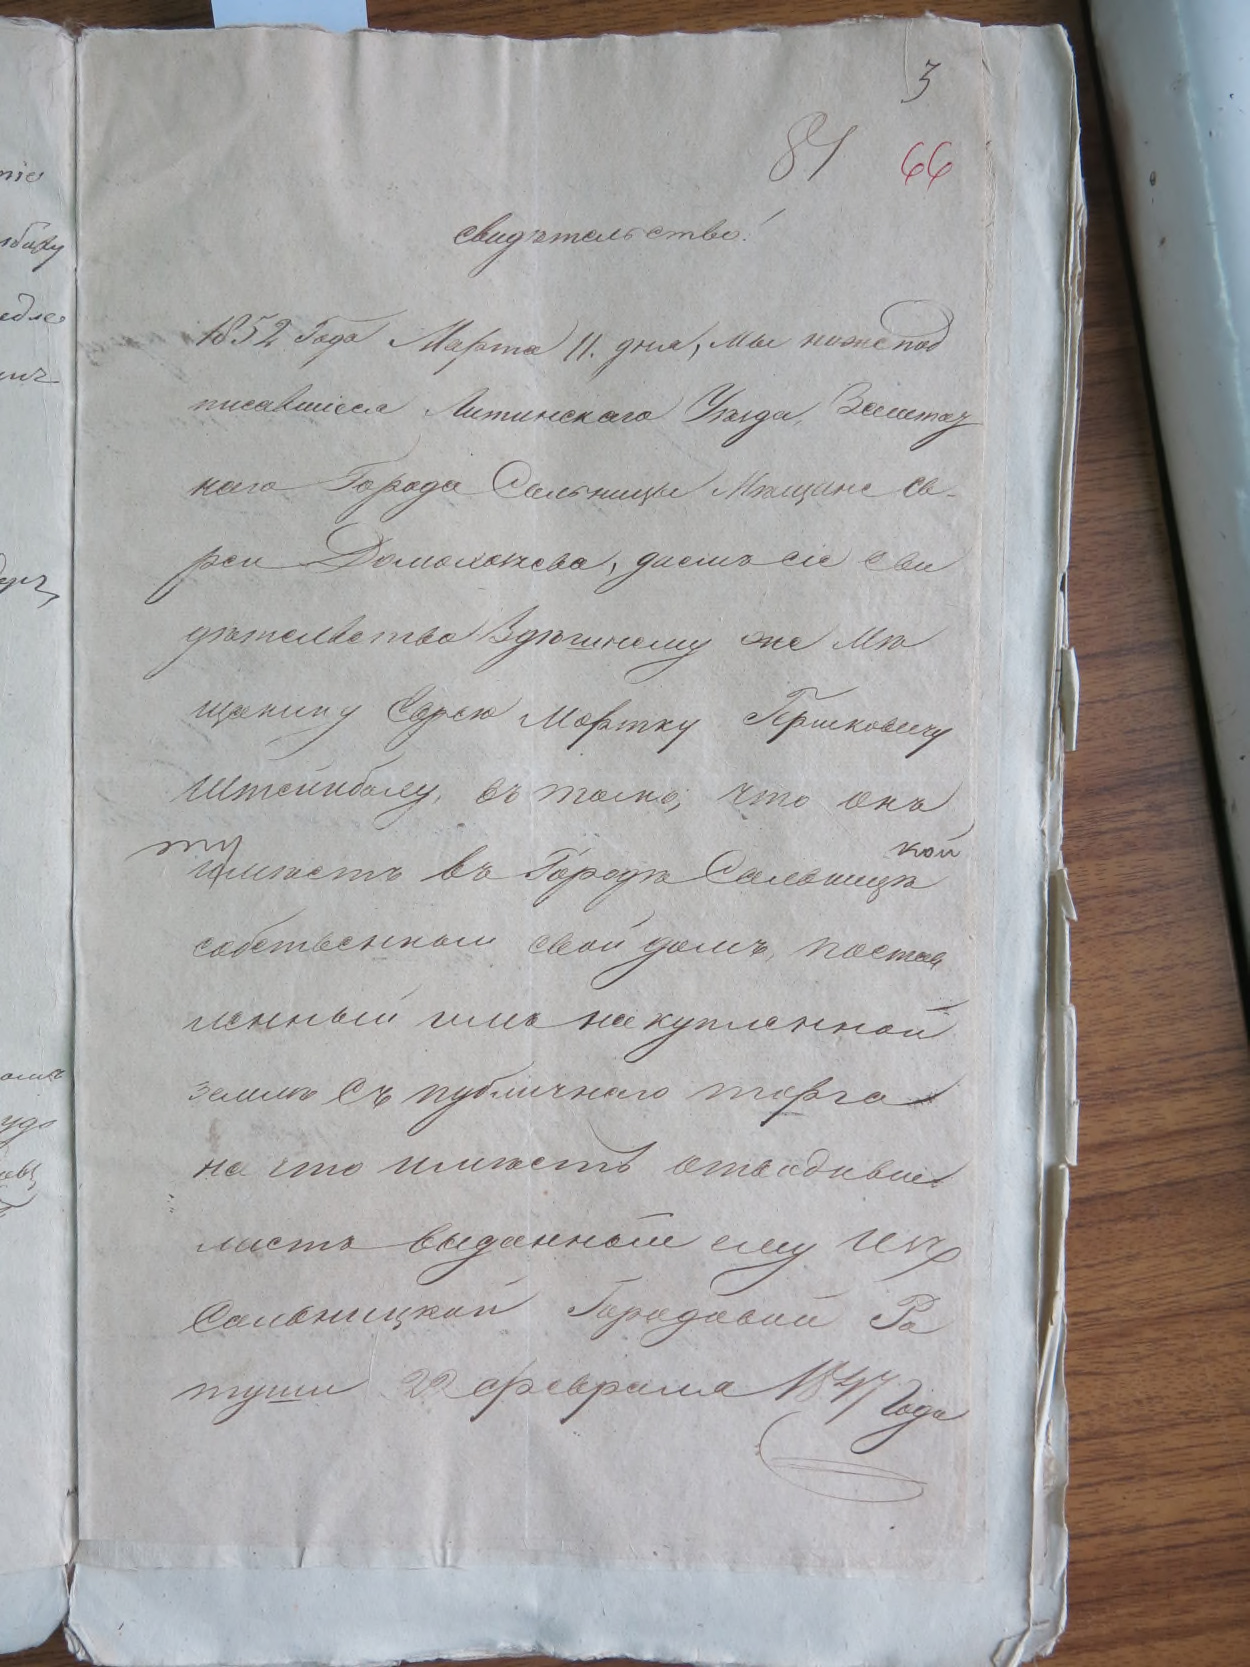 3
81 66
свидѣтельство.
1852 Года Марта 11. дня, мы нижепод
писавшіеся Литинскаго Уѣзда, Заштат
наго Города Сальницы Мѣщане Ев-
реи Домохозяева, даемъ сіе сви
дѣтелѣство Здѣшнему же Мѣ
щанину Еврею Мортку Гершковичу
Штейнбалу, въ томъ, что онъ
имѣетъ въ Городѣ Сальницѣ
кой
собственный свой домъ, постав
ленный имъ на купленной
землѣ Съ публичнаго торга
на что имѣетъ
листъ выданный ему Изъ
Сальницкой Городовой Ра
туши 22 февраля 1847 Года